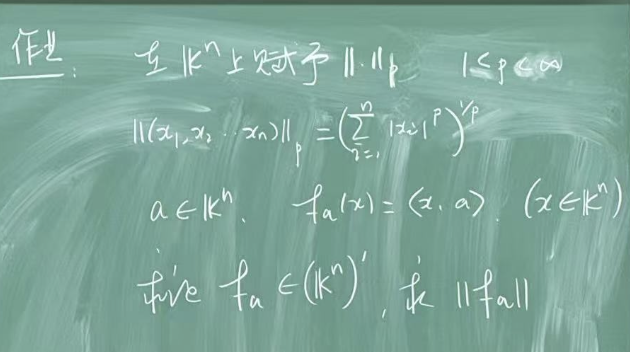 作业: 在 𝕂ⁿ 上赋予 ‖·‖ₚ 1 ≤ p < ∞
‖(x₁, x₂ ··· xₙ)‖ₚ = (∑ⁿᵢ₌₁ |xᵢ|ᵖ)^{1/p}
a ∈ 𝕂ⁿ. fₐ(x) = ⟨x, a⟩. (x ∈ 𝕂ⁿ)
求证 fₐ ∈ (𝕂ⁿ)′, 求 ‖fₐ‖